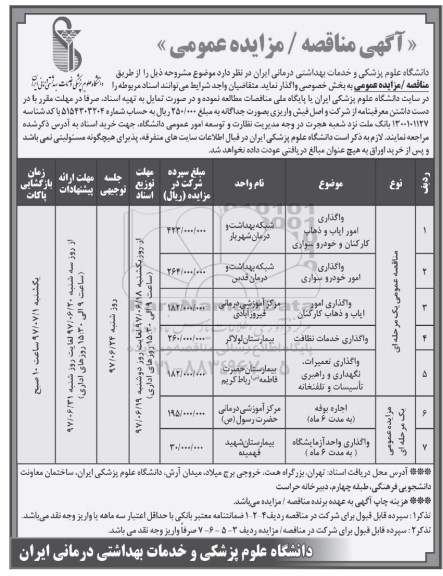 « آگهی مناقصه / مزایده عمومی »
دانشگاه علوم پزشکی و خدمات بهداشتی درمانی ایران در نظر دارد موضوع مشروحه ذیل را از طریق
مناقصه / مزایده عمومی به بخش خصوصی واگذار نماید. متقاضیان واجد شرایط می‌توانند اسناد مربوطه را
در سایت دانشگاه علوم پزشکی ایران یا پایگاه ملی مناقصات مطالعه نموده و در صورت تمایل به تهیه اسناد، صرفا در مهلت مقرر با در
دست داشتن معرفینامه از شرکت و اصل فیش واریزی بصورت جداگانه به مبلغ ۲۵۰/۰۰۰ ریال به حساب شماره ۵۱۵۴۳۰۳۲۰۴ با کد شناسه
۱۳۰۰۱۰۱۱۲۷ بانک ملت نزد شعبه هجرت در وجه مدیریت نظارت و توسعه امور عمومی دانشگاه، جهت خرید اسناد به آدرس ذکر شده
مراجعه نمایند. لازم به ذکر است دانشگاه علوم پزشکی ایران در قبال اطلاعات سایت های متفرقه، پذیرای هیچگونه مسئولیتی نمی باشد
و پس از خرید اوراق به هیچ عنوان مبالغ دریافتی عودت داده نخواهد شد.
ردیف نوع موضوع نام واحد مبلغ سپرده شرکت در مزایده (ریال) مهلت توزیع اسناد جلسه توجیهی مهلت ارائه پیشنهادات زمان بازگشایی پاکات
۱ واگذاری امور ایاب و ذهاب کارکنان و خودرو سواری شبکه بهداشت و درمان شهریار ۴۲۳/۰۰۰/۰۰۰
۲ واگذاری امور خودرو سواری شبکه بهداشت و درمان قدس ۲۶۴/۰۰۰/۰۰۰
۳ واگذاری امور ایاب و ذهاب کارکنان مرکز آموزشی درمانی فیروزآبادی ۱۸۲/۰۰۰/۰۰۰
۴ واگذاری خدمات نظافت بیمارستان لولاگر ۲۶۰/۰۰۰/۰۰۰
۵ واگذاری تعمیرات، نگهداری و راهبری تأسیسات و تلفنخانه بیمارستان حضرت فاطمه (س) رباط کریم ۱۸۲/۰۰۰/۰۰۰
۶ اجاره بوفه (به مدت ۶ ماه) مرکز آموزشی درمانی حضرت رسول (ص) ۱۹۵/۰۰۰/۰۰۰
۷ واگذاری واحد آزمایشگاه (به مدت ۶ ماه) بیمارستان شهید فهمیده ۳۰/۰۰۰/۰۰۰
مناقصه عمومی یک مرحله ای
مزایده عمومی یک مرحله ای
از روز یکشنبه ۹۷/۰۶/۱۸ لغایت روز دوشنبه ۹۷/۰۶/۱۹ (ساعت ۹ الی ۱۵:۳۰ روزهای اداری)
روز شنبه ۹۷/۰۶/۲۴
از روز سه شنبه ۹۷/۰۶/۲۰ لغایت روز شنبه ۹۷/۰۶/۳۱ (ساعت ۹ الی ۱۵:۳۰ روزهای اداری)
یکشنبه ۹۷/۰۷/۱ ساعت ۱۰ صبح
*** آدرس محل دریافت اسناد: تهران، بزرگراه همت، خروجی برج میلاد، میدان آرش، دانشگاه علوم پزشکی ایران، ساختمان معاونت
دانشجویی فرهنگی، طبقه چهارم، دبیرخانه حراست
*** هزینه چاپ آگهی به عهده برنده مناقصه / مزایده می‌باشد.
تذکر۱: سپرده قابل قبول برای شرکت در مناقصه ردیف ۴-۲-۱ ضمانتنامه معتبر بانکی با حداقل اعتبار سه ماهه یا واریز وجه نقد می‌باشد.
تذکر۲: سپرده قابل قبول برای شرکت در مناقصه / مزایده ردیف ۳-۵-۶-۷ صرفاً واریز وجه نقد می باشد.
دانشگاه علوم پزشکی و خدمات بهداشتی درمانی ایران